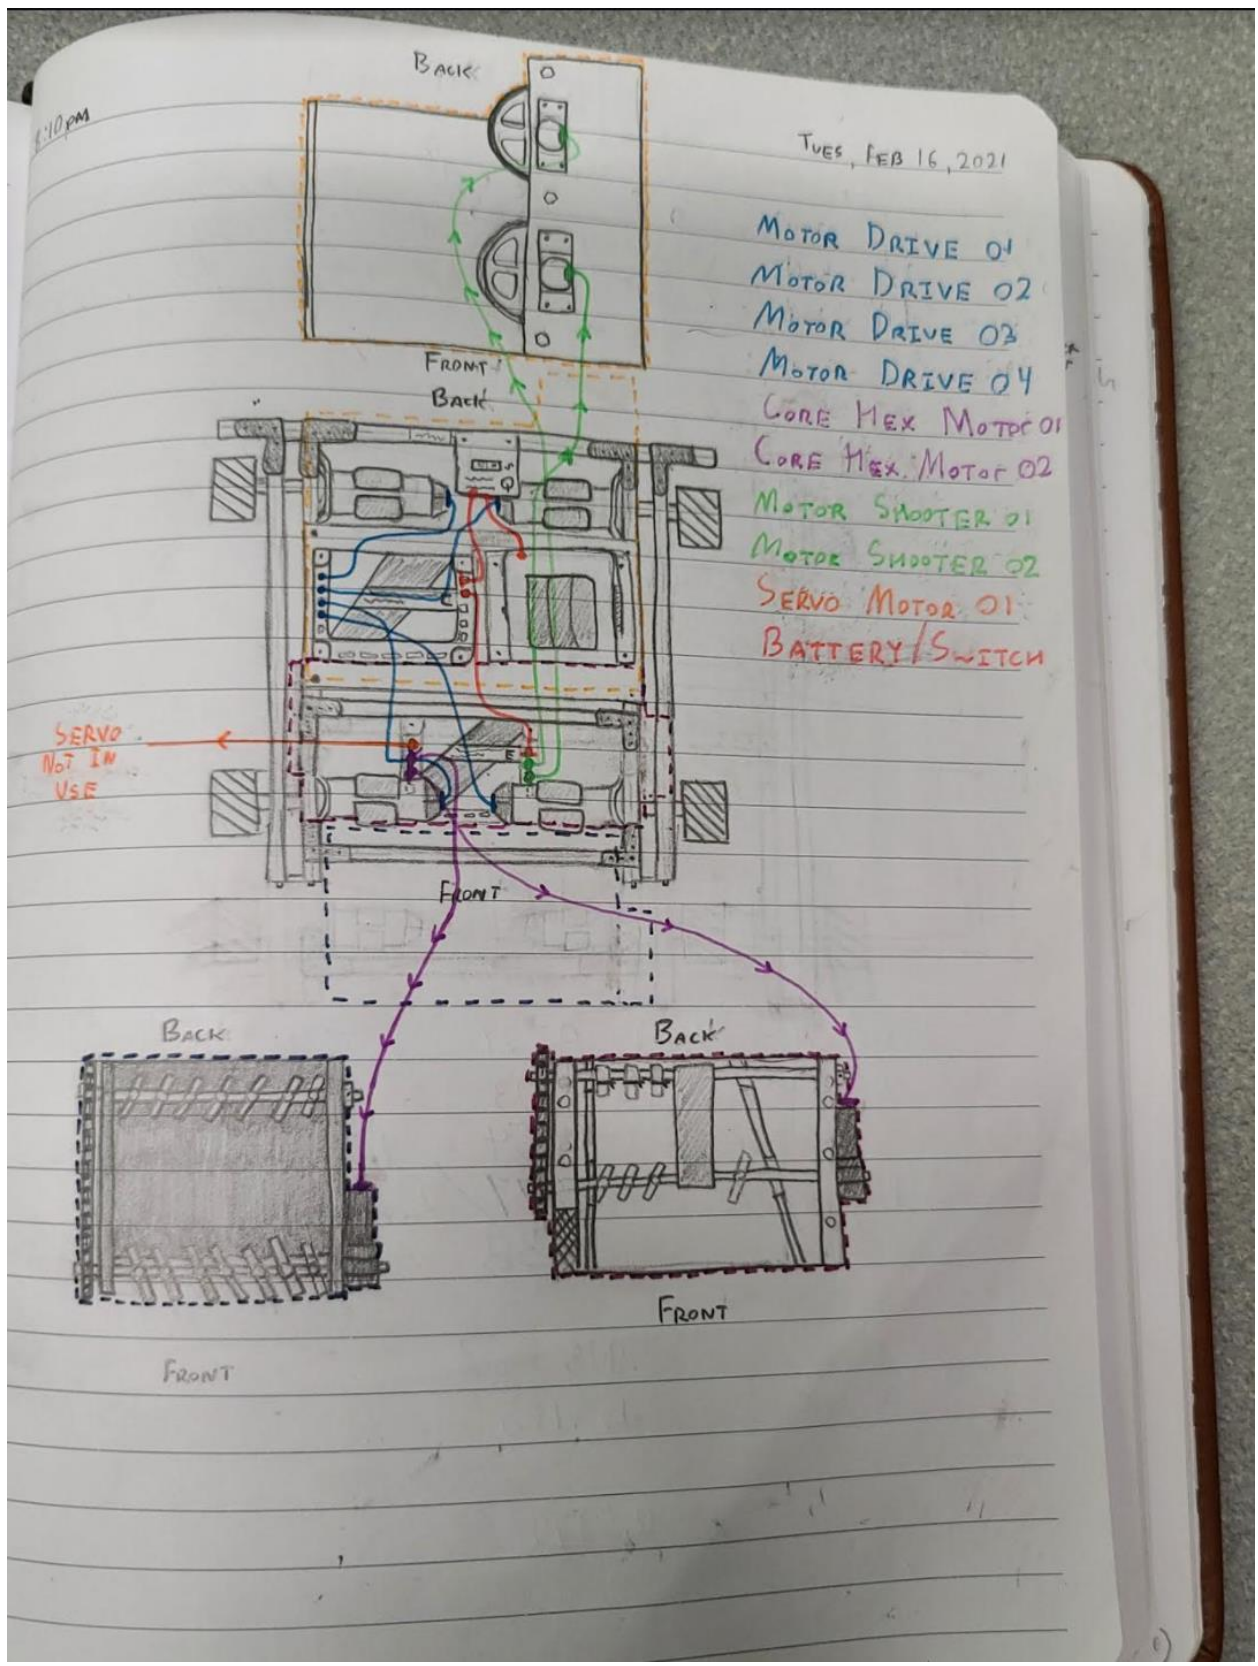 Back
8:10 PM
Tues, Feb 16, 2021
Motor Drive 01
Motor Drive 02
Motor Drive 03
Motor Drive 04
Core Hex Motor 01
Core Hex Motor 02
Motor Shooter 01
Motor Shooter 02
Servo Motor 01
Battery/Switch
Front
Back
C
Servo
Not in
Use
E
Front
Back
Back
Front
Front